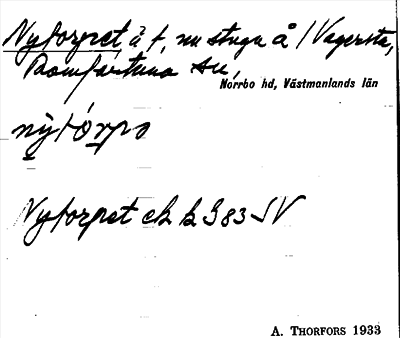 Nytorpet ä t, nu stuga å 1 Vagersta,
Romfartuna sn,
Norrbo hd, Västmanlands län
nỳtórpə
Nytorpet ek bl 383 SV
A. THORFORS 1933